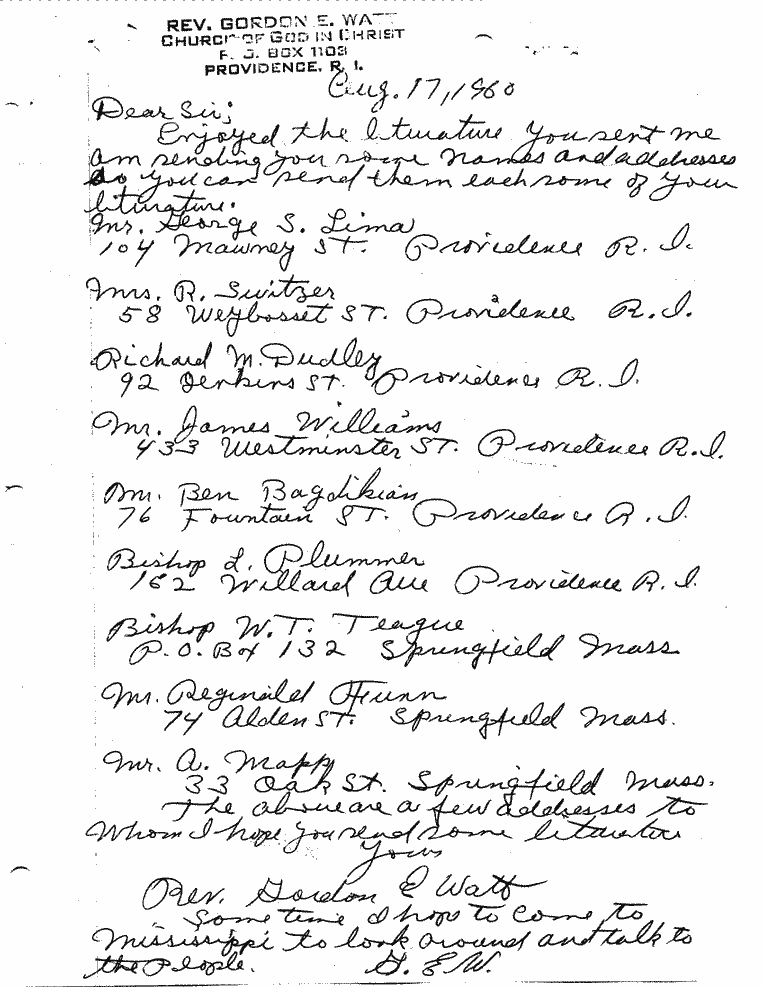 REV. GORDON E. WATT
CHURCH OF GOD IN CHRIST
P. O. BOX 1103
PROVIDENCE, R. I.
Aug. 17, 1960
Dear Sir;
Enjoyed the literature you sent me
am sending you some names and addresses
so you can send them each some of your
literature.
Mr. George S. Lima
104 Mawney St. Providence R. I.
Mrs. R. Switzer
58 Weybosset St. Providence R. I.
Richard M. Dudley
92 Jenkins St. Providence R. I.
Mr. James Williams
433 Westminster St. Providence R. I.
Mr. Ben Bagdikian
76 Fountain St. Providence R. I.
Bishop L. Plummer
162 Willard Ave Providence R. I.
Bishop W. T. Teague
P.O. Box 132 Springfield Mass
Mr. Reginald
74 Alden St. Springfield Mass.
Mr. A. Mapp
33 Oak St. Springfield Mass.
The above are a few addresses to
Whom I hope you send some literature
Yours
Rev. Gordon E Watt
Some time I hope to come to
Mississippi to look around and talk to
the People. G. E. W.